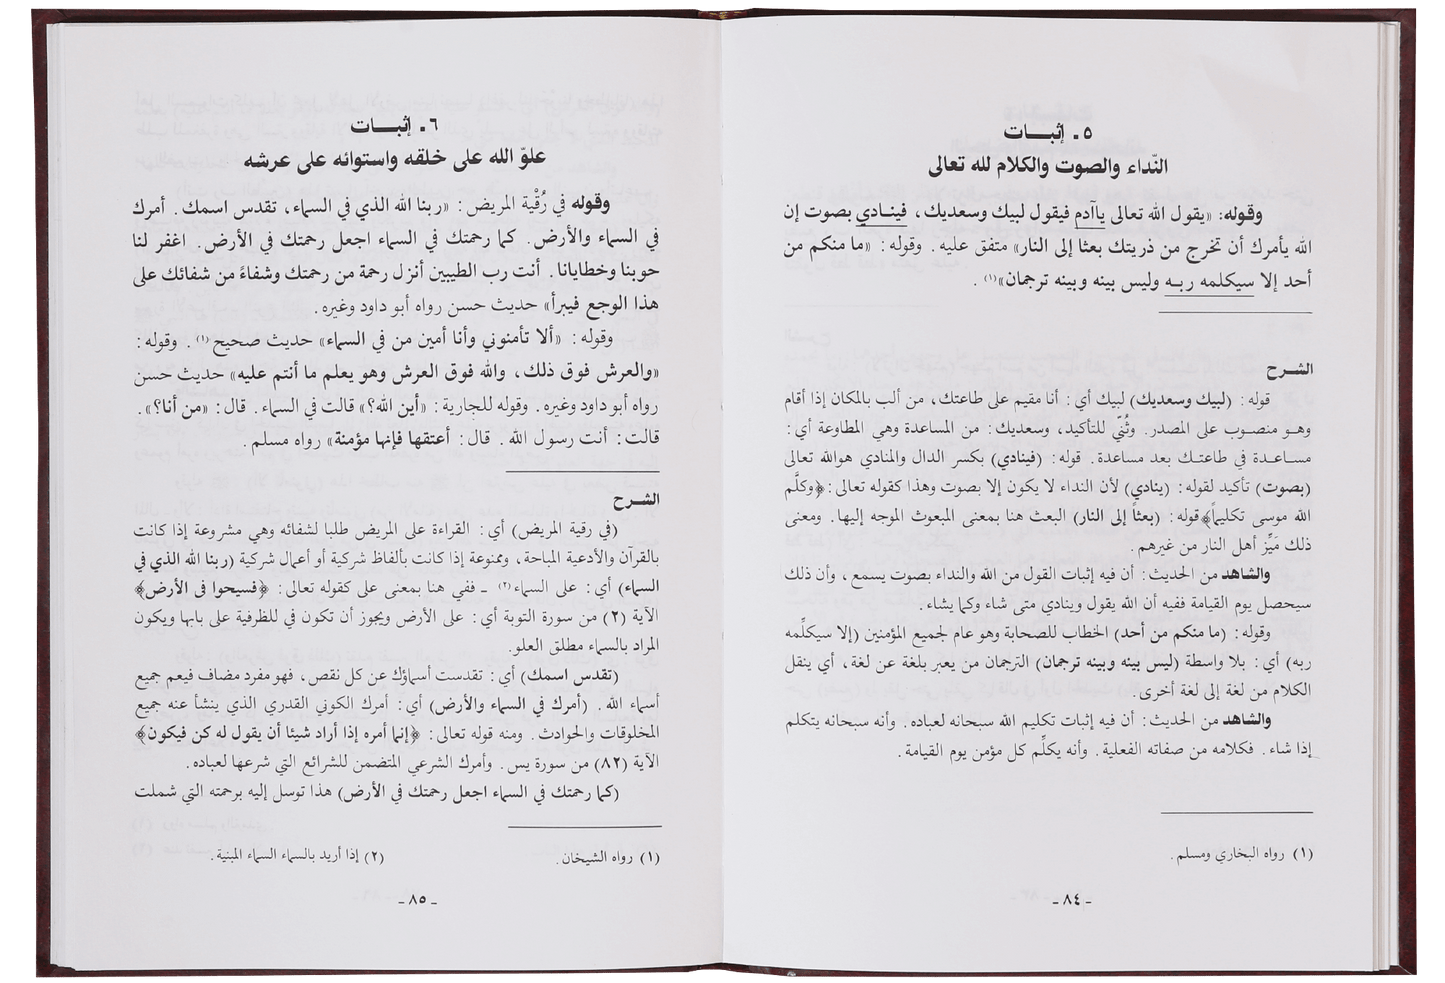 ٥. إثبـــات
النّداء والصوت والكلام لله تعالى
وقوله: «يقول الله تعالى ياآدم فيقول لبيك وسعديك، فينادي بصوت إن
الله يأمرك أن تخرج من ذريتك بعثا إلى النار» متفق عليه. وقوله: «ما منكم من
أحد إلا سيكلمه ربـه وليس بينه وبينه ترجمان»(١).
الشـرح
قوله: (لبيك وسعديك) لبيك أي: أنا مقيم على طاعتك، من ألب بالمكان إذا أقام
وهـو منصـوب على المصدر. وثُنّي للتأكيد، وسعديك: من المساعدة وهي المطاوعة أي:
مساعـدة في طاعتـك بعد مساعدة. قوله: (فينادي) بكسر الدال والمنادي هوالله تعالى
(بصوت) تأكيد لقوله: (ينادي) لأن النداء لا يكون إلا بصوت وهذا كقوله تعالى:﴿وكلَّم
الله موسى تكليماً﴾قوله: (بعثاً إلى النار) البعث هنا بمعنى المبعوث الموجه إليها. ومعنى
ذلك مَيِّز أهل النار من غيرهم.
والشاهد من الحديث: أن فيه إثبات القول من الله والنداء بصوت يسمع، وأن ذلك
سيحصل يوم القيامة ففيه أن الله يقول وينادي متى شاء وكما يشاء.
وقوله: (ما منكم من أحد) الخطاب للصحابة وهو عام لجميع المؤمنين (إلا سيكلِّمه
ربه) أي: بلا واسطة (ليس بينه وبينه ترجمان) الترجمان من يعبر بلغة عن لغة، أي ينقل
الكلام من لغة إلى لغة أخرى.
والشاهد من الحديث: أن فيه إثبات تكليم الله سبحانه لعباده. وأنه سبحانه يتكلم
إذا شاء. فكلامه من صفاته الفعلية. وأنه يكلِّم كل مؤمن يوم القيامة.
(١) رواه البخاري ومسلم.
- ٨٤ -
٦. إثبـــات
علوّ الله على خلقه واستوائه على عرشه
وقوله في رُقْية المريض: «ربنا الله الذي في السماء، تقدس اسمك. أمرك
في السماء والأرض. كما رحمتك في السماء اجعل رحمتك في الأرض. اغفر لنا
حوبنا وخطايانا. أنت رب الطيبين أنزل رحمة من رحمتك وشفاءً من شفائك على
هذا الوجع فيبرأ» حديث حسن رواه أبو داود وغيره.
وقوله: «ألا تأمنوني وأنا أمين من في السماء» حديث صحيح(١). وقوله:
«والعرش فوق ذلك، والله فوق العرش وهو يعلم ما أنتم عليه» حديث حسن
رواه أبو داود وغيره. وقوله للجارية: «أين الله؟» قالت في السماء. قال: «من أنا؟».
قالت: أنت رسول الله. قال: أعتقها فإنها مؤمنة» رواه مسلم.
الشـرح
(في رقية المريض) أي: القراءة على المريض طلبا لشفائه وهي مشروعة إذا كانت
بالقرآن والأدعية المباحة، وممنوعة إذا كانت بألفاظ شركية أو أعمال شركية (ربنا الله الذي في
السماء) أي: على السماء(٢) ـ ففي هنا بمعنى على كقوله تعالى: ﴿فسيحوا فى الأرض﴾
الآية (٢) من سورة التوبة أي: على الأرض ويجوز أن تكون في للظرفية على بابها ويكون
المراد بالسماء مطلق العلو.
(تقدس اسمك) أي: تقدست أسماؤك عن كل نقص، فهو مفرد مضاف فيعم جميع
أسماء الله. (أمرك في السماء والأرض) أي: أمرك الكوني القدري الذي ينشأ عنه جميع
المخلوقات والحوادث. ومنه قوله تعالى: ﴿إنما أمره إذا أراد شيئا أن يقول له كن فيكون﴾
الآية (٨٢) من سورة يس. وأمرك الشرعي المتضمن للشرائع التي شرعها لعباده.
(كما رحمتك في السماء اجعل رحمتك في الأرض) هذا توسل إليه برحمته التي شملت
(١) رواه الشيخان. (٢) إذا أريد بالسماء السماء المبنية.
- ٨٥ -